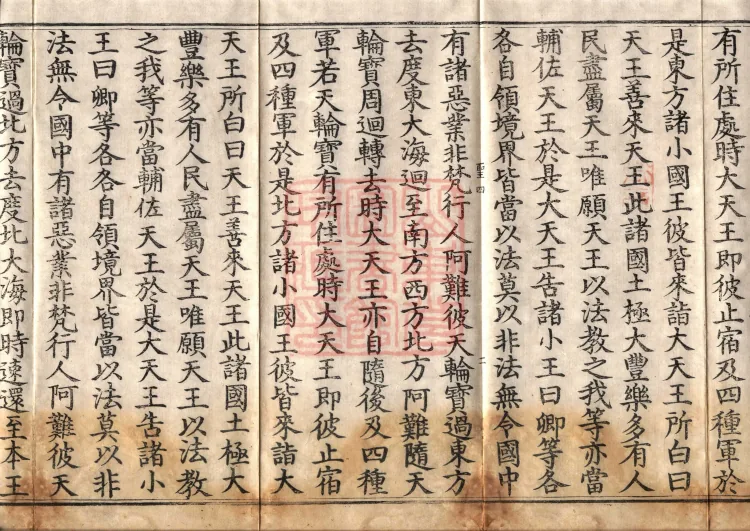 有所住處時大天王即彼止宿及四種軍於
是東方諸小國王彼皆來詣大天王所白曰
天王善來天王此諸國土極大豐樂多有人
民盡屬天王唯願天王以法教之我等亦當
輔佐天王於是大天王告諸小王曰卿等各
各自領境界皆當以法莫以非法無令國中
聖四
二
有諸惡業非梵行人阿難彼天輪寶過東方
去度東大海迴至南方西方北方阿難隨天
輪寶周迴轉去時大天王亦自隨後及四種
軍若天輪寶有所住處時大天王即彼止宿
及四種軍於是北方諸小國王彼皆來詣大
天王所白曰天王善來天王此諸國土極大
豐樂多有人民盡屬天王唯願天王以法教
之我等亦當輔佐天王於是大天王告諸小
王曰卿等各各自領境界皆當以法莫以非
法無令國中有諸惡業非梵行人阿難彼天
輪寶過北方去度北大海即時速還至本王